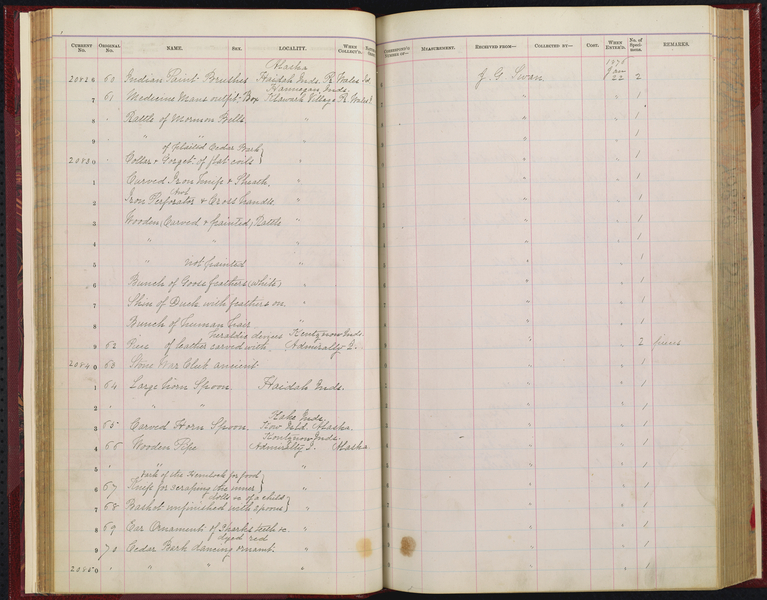 CURRENT No. ORIGINAL No. NAME. SEX. LOCALITY. WHEN COLLECT'D. MEASUREMENT. RECEIVED FROM— COLLECTED BY— COST. WHEN ENTER'D. No. of Specimens. REMARKS.
Alaska 1876
20826 60 Indian Paint Brushes Haidah Inds. P. Wales Isd J. G. Swan Jan 22 2
Hannegan Inds.
7 61 Medicine Mans outfit-Box Klawack Village P. Wales I. " " 1
8 " Rattle of Mormon Bells " " " 1
9 " " " " " " 1
of plaited Cedar Bark
20830 " Collar & Gorget of flat coils } " " " 1
1 Carved Iron Knife & Sheath, " " " 1
2 Iron Perforator & Cross handle " " " 1
3 Wooden, Carved & painted, Rattle " " " 1
4 " " " " " 1
5 " not painted " " " 1
6 Bunch of Goose feathers (white) " " " 1
7 Skin of Duck with feathers on " " " 1
8 Bunch of human hair " " " 1
heraldic devices Kootznow Inds.
9 62 Pieces of leather carved with Admiralty I. " " 2 pieces
20840 63 Stone War Club ancient " " 1
1 64 Large horn Spoon Haidah Inds. " " 1
2 " " " " 1
Kake Inds.
3 65 Carved Horn Spoon Kow Isld. Alaska. " " 1
Kootznow Inds.
4 66 Wooden Pipe Admiralty I. Alaska " " 1
5 " " " " " 1
bark of the Hemlock for food
6 67 Knife for scraping the inner } " " " 1
dolls &c of a child
7 68 Basket unfinished with spoons } " " " 1
8 69 Ear Ornament of Sharks teeth &c. " " " 1
dyed red
9 70 Cedar Bark dancing ornamt. " " " 1
20850 " " " " " " 1